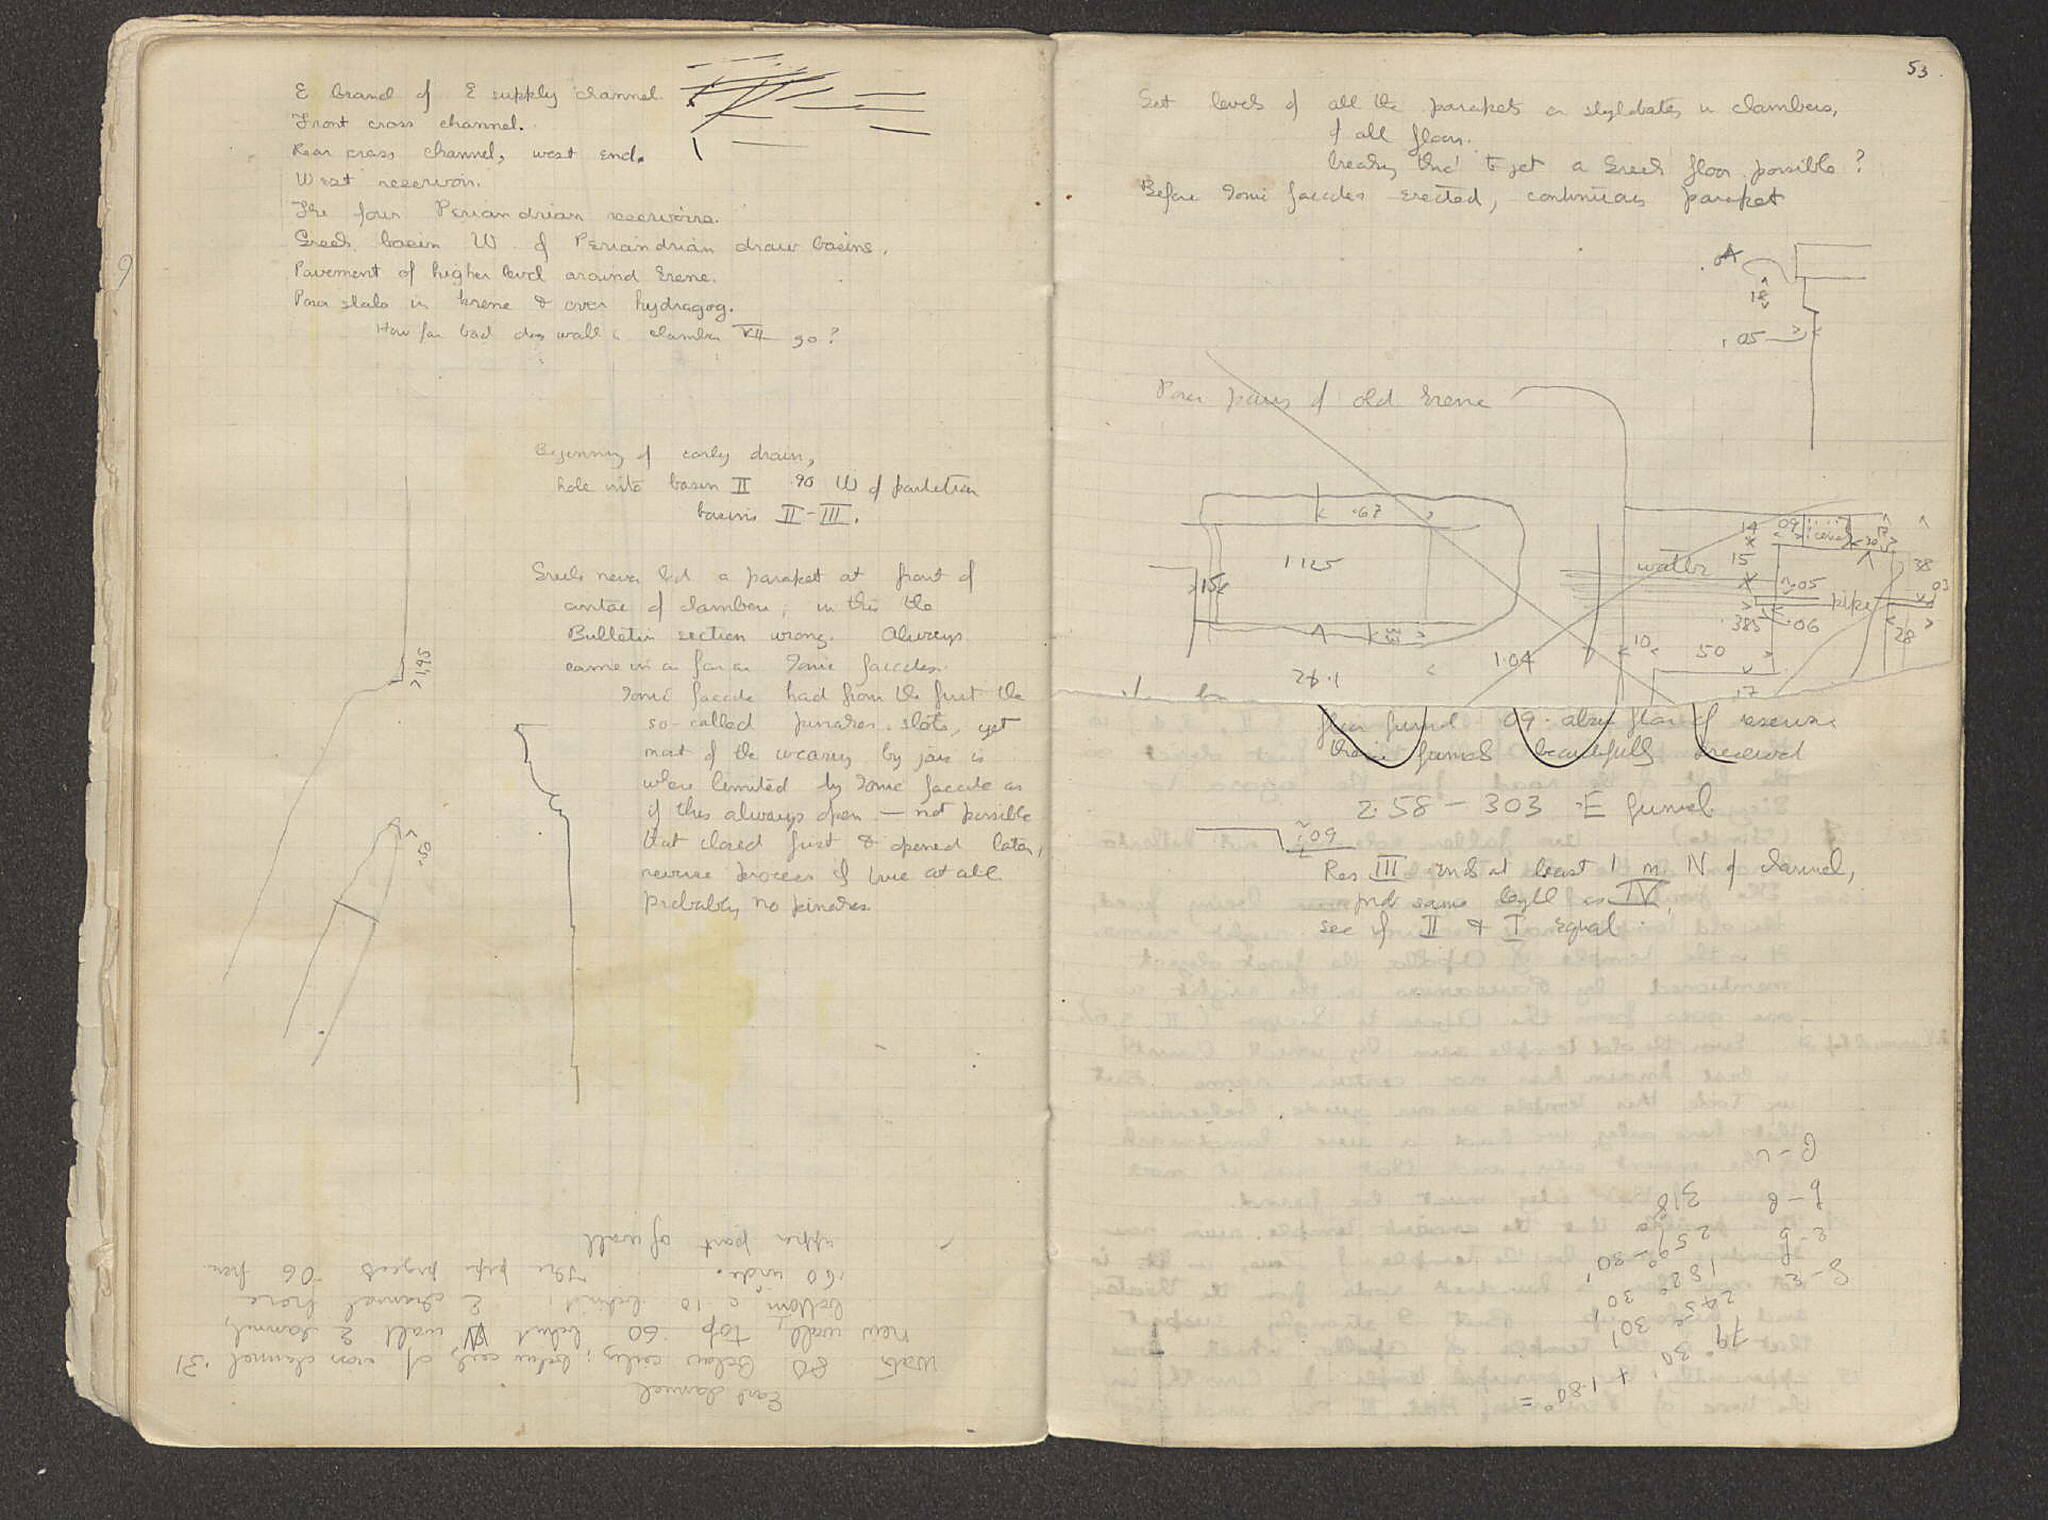 E branch of E supply channel
Front cross channel.
Rear cross channel, west end.
West reservoir.
The four Periandrian reservoirs.
Greek basin W of Periandrian draw basins.
Pavement of higher level around Krene.
Poros slabs in Krene & over hydragog.
How far back does wall in chamber VII go?
Beginning of early drain,
hole into basin II .90 W of partition
basins II-III.
Greeks never had a parapet at front of
antae of chambers, in this the
Bulletin section wrong. Always
came in as far as Ionic facades.
>1.95
Ionic facade had from the first the
so-called pinakes slots, yet
most of the wearing by jars is
where limited by Ionic facade as
if this always open — not possible
that closed first & opened later,
reverse process if true at all
probably no pinakes
.50
Early channel
Water 80 below ceiling; below ceil. of main channel .31
new wall, top .60 behind W wall E channel,
bottom c 10 behind. E channel here
.60 wide. The pipe projects .06 from
upper part of wall
53
Get levels of all the parapets or stylobates in chambers,
of all floors.
to get a Greek floor possible?
Before Ionic facades erected, continuous parapet
18
.05
Poros parts of old Krene
.67
1.125
15
33
14
09
15
water
.05
pipe
38
03
.385
.06
28
10
50
1.04
17
floor funnel .09 above floor of reservoir
their funnels beautifully preserved
2.58 - 303 E funnel
.09
Res III ends at least 1 m N of channel,
prob same length as IV,
see if II & I equal
318
259°-30'
182° 30'
245° 30'
79° 30'
+ 1.80° =